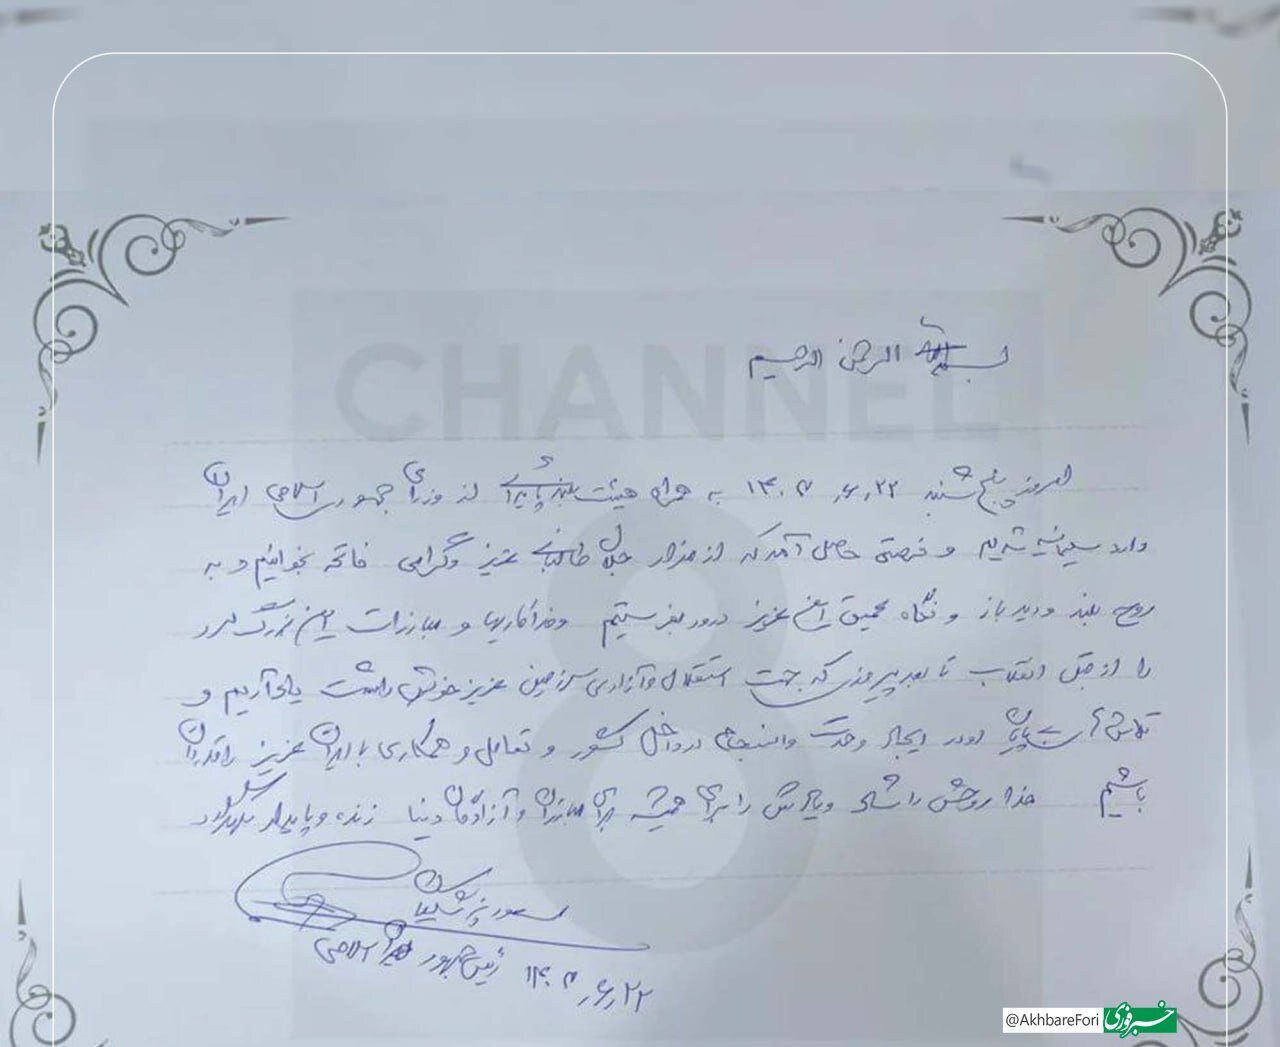 بسم الله الرحمن الرحیم
CHANNEL
8
امروز پنج شنبه ۱۴۰۳٫۶٫۲۲ به همراه هیئت بلند پایه‌ای از وزرای جمهوری اسلامی ایران
وارد سلیمانیه شدیم و فرصتی حاصل آمد که از مزار جلال طالبانی عزیز و گرامی فاتحه بخوانیم و به
روح بلند و دید باز و نگاه عمیق این عزیز درود بفرستیم و فداکاریها و مبارزات این بزرگ مرد
را از قبل انقلاب تا بعد پیروزی که جهت استقلال و آزادی سرزمین عزیز خویش داشت یاد آریم و
تلاش بی پایان او در ایجاد وحدت و انسجام در داخل کشور و تعامل و همکاری با ایران عزیز را قدردان
باشیم خدا روحش را شاد و یادش را برای همیشه برای مبارزان و آزادگان دنیا زنده و پایدار
مسعود پزشکیان
رئیس جمهور ایران اسلامی ۱۴۰۳٫۶٫۲۲
@AkhbareFori خبرفوری